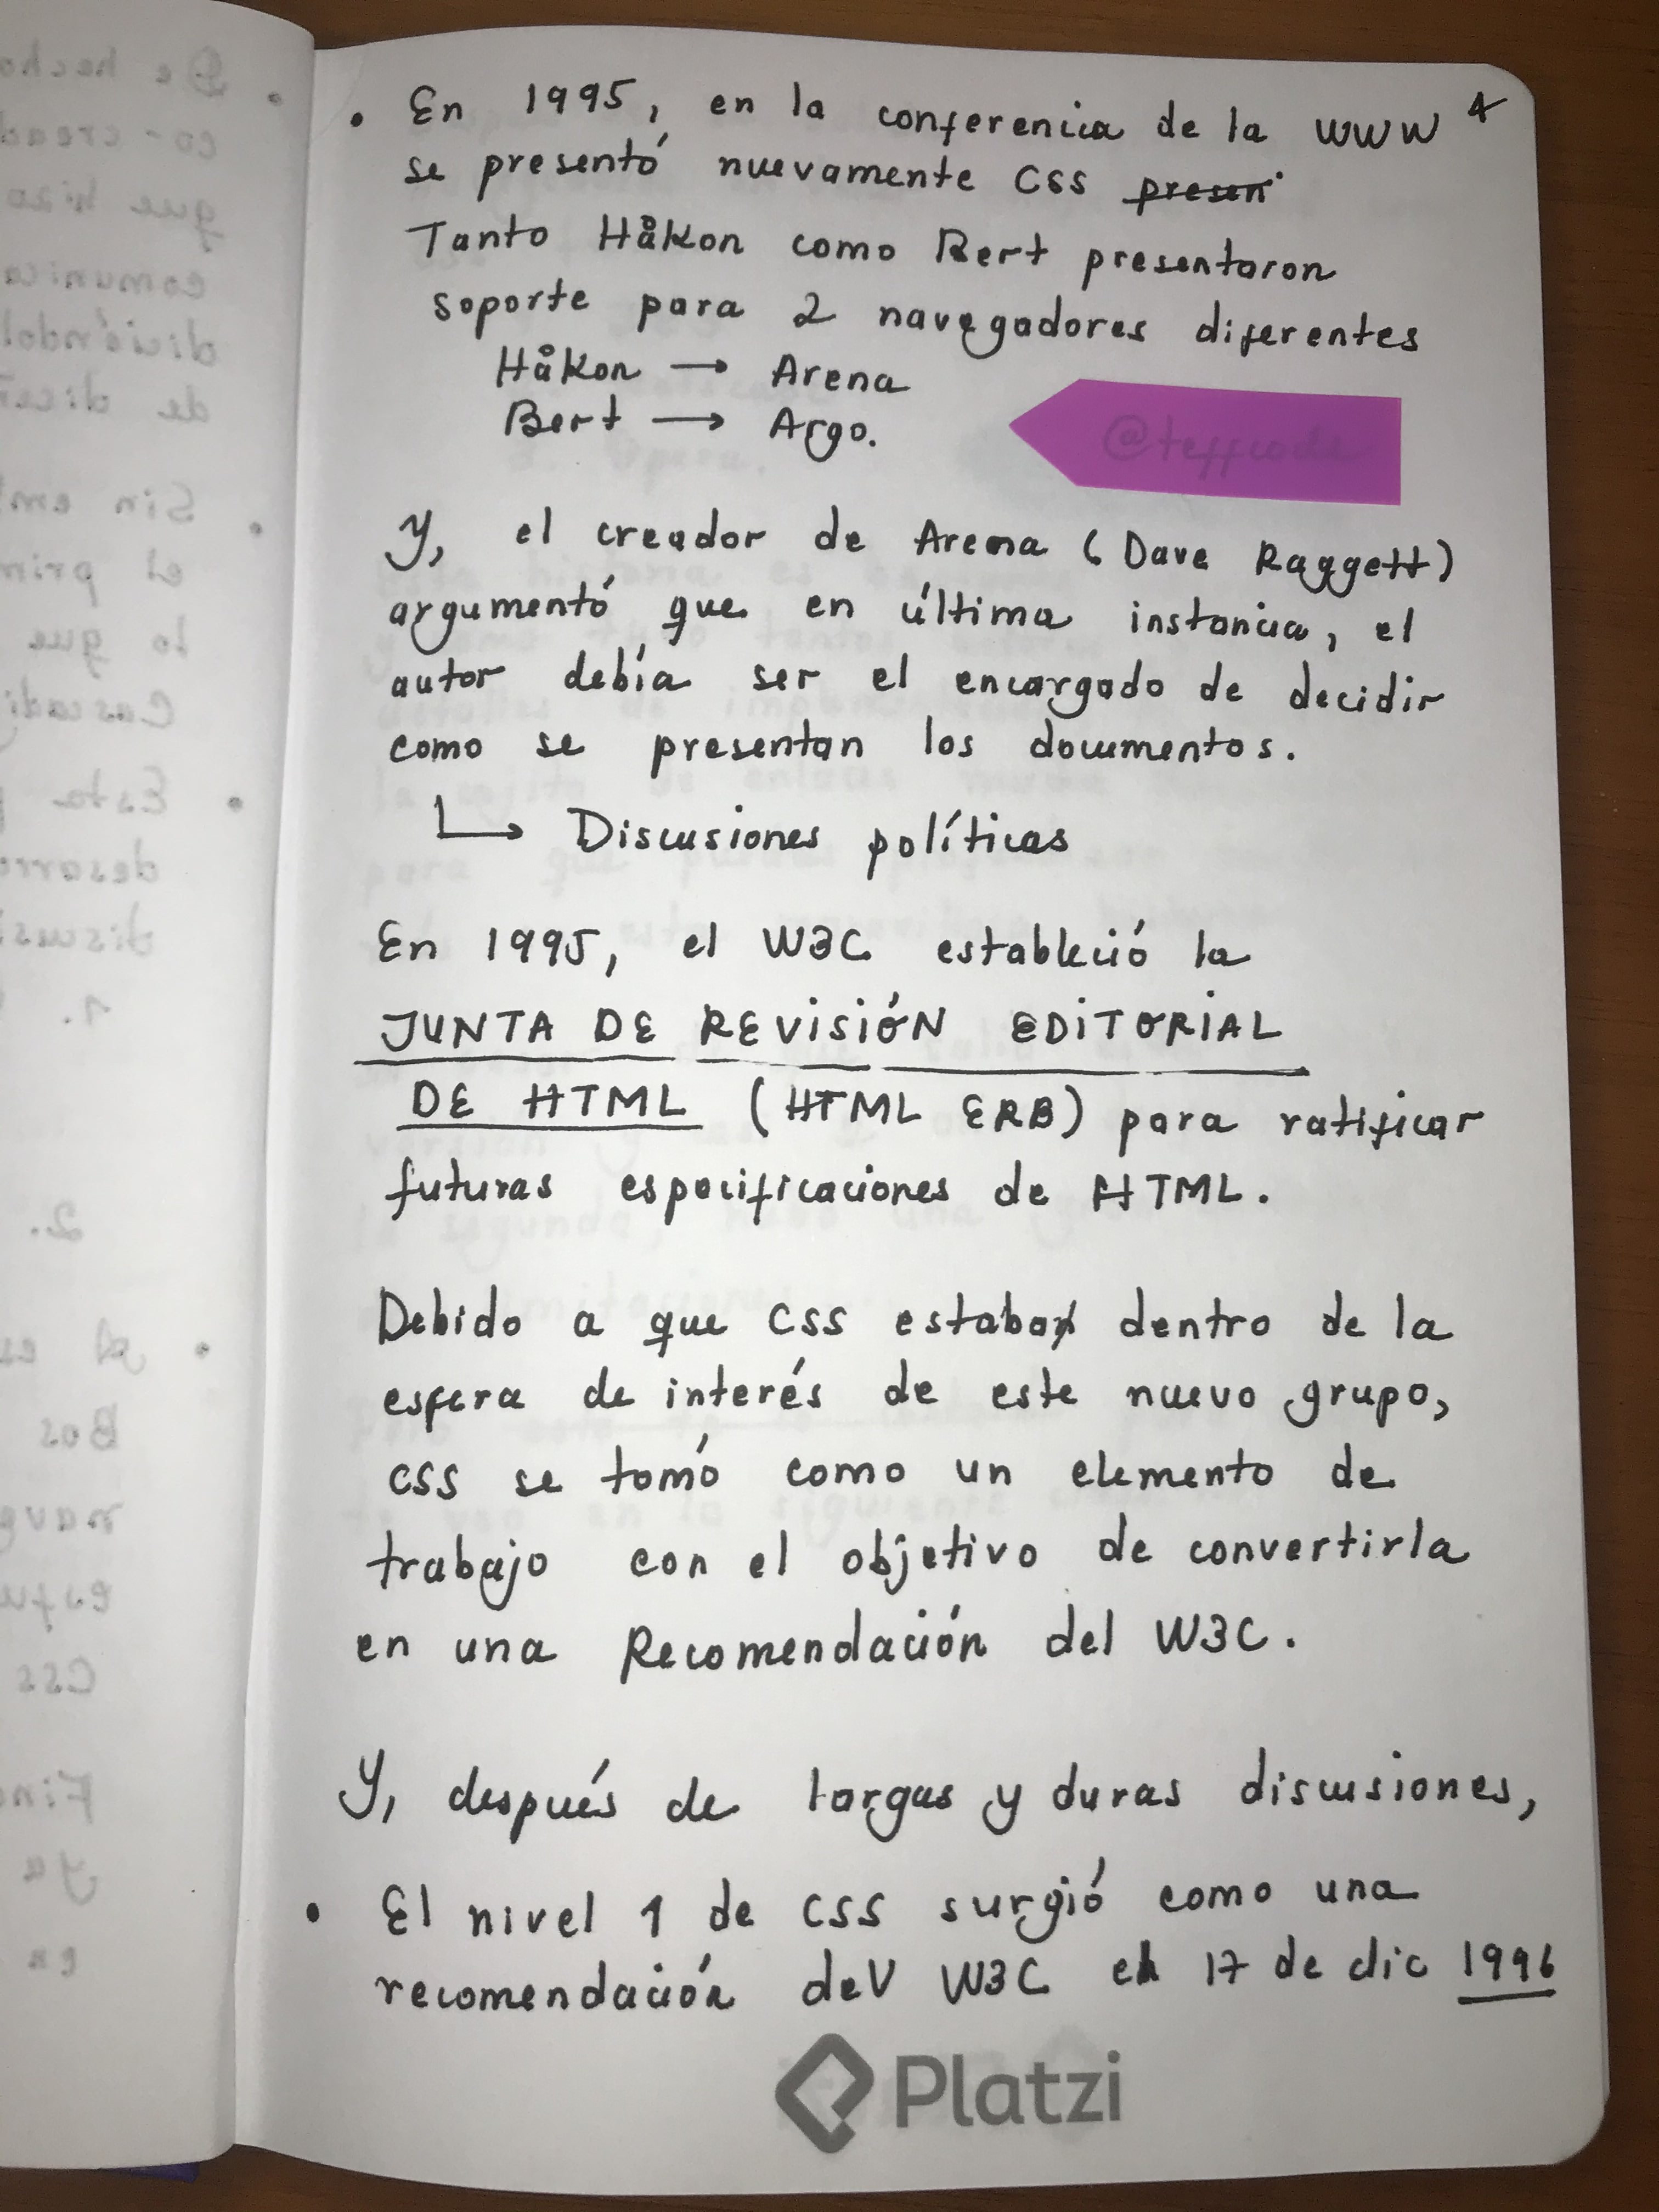 En 1995, en la conferencia de la WWW 4
se presentó nuevamente CSS presen
Tanto Håkon como Bert presentaron
soporte para 2 navegadores diferentes
Håkon → Arena
Bert → Argo.
@teffcode
Y, el creador de Arena (Dave Raggett)
argumentó que en última instancia, el
autor debía ser el encargado de decidir
como se presentan los documentos.
↳ Discusiones políticas
En 1995, el W3C estableció la
JUNTA DE REVISIÓN EDITORIAL
DE HTML (HTML ERB) para ratificar
futuras especificaciones de HTML.
Debido a que CSS estaba dentro de la
esfera de interés de este nuevo grupo,
CSS se tomó como un elemento de
trabajo con el objetivo de convertirla
en una Recomendación del W3C.
Y, después de largas y duras discusiones,
• El nivel 1 de CSS surgió como una
recomendación del W3C el 17 de dic 1996
Platzi
De hecho
co-cread
que hizo
comunica
diciéndol
de diseñ
Sin em
el prim
lo que
Cascadi
Esta p
desarro
discusi
1.
2.
Bos
nave
esfu
CSS
Fin
ya
en